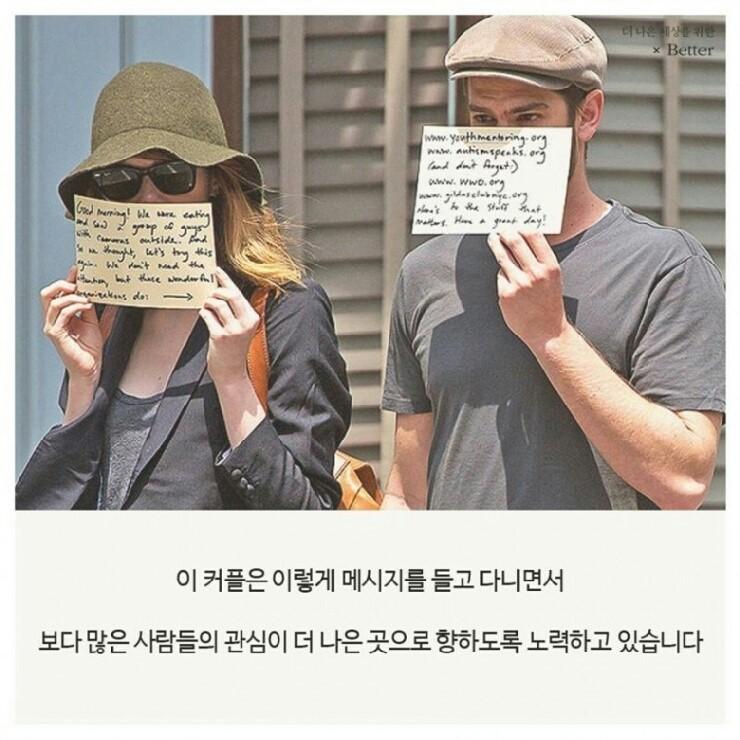 더 나은 세상을 위한
× Better
Good morning! We were eating
and saw a group of guys
with cameras outside. And
so we thought, let's try this
again. We don't need the
attention, but these wonderful
organizations do: →
www.youthmentoring.org
www.autismspeaks.org
(and don't forget!)
www.wwo.org
www.gildasclubnyc.org
Here's to the stuff that
matters. Have a great day!
이 커플은 이렇게 메시지를 들고 다니면서
보다 많은 사람들의 관심이 더 나은 곳으로 향하도록 노력하고 있습니다